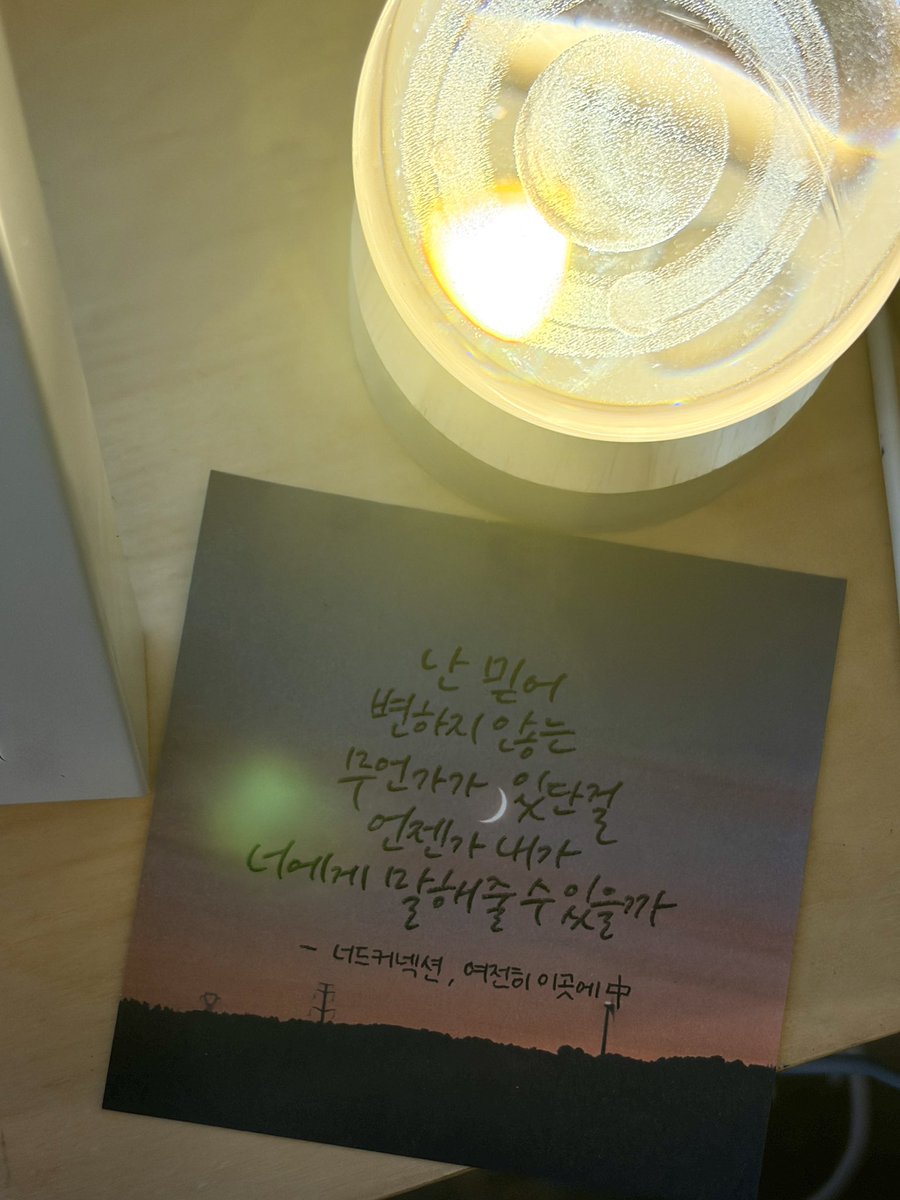 난 믿어
변하지 않는
무언가가 있단걸
언젠가 내가
너에게 말해줄 수 있을까
- 너드커넥션, 여전히 이곳에 中